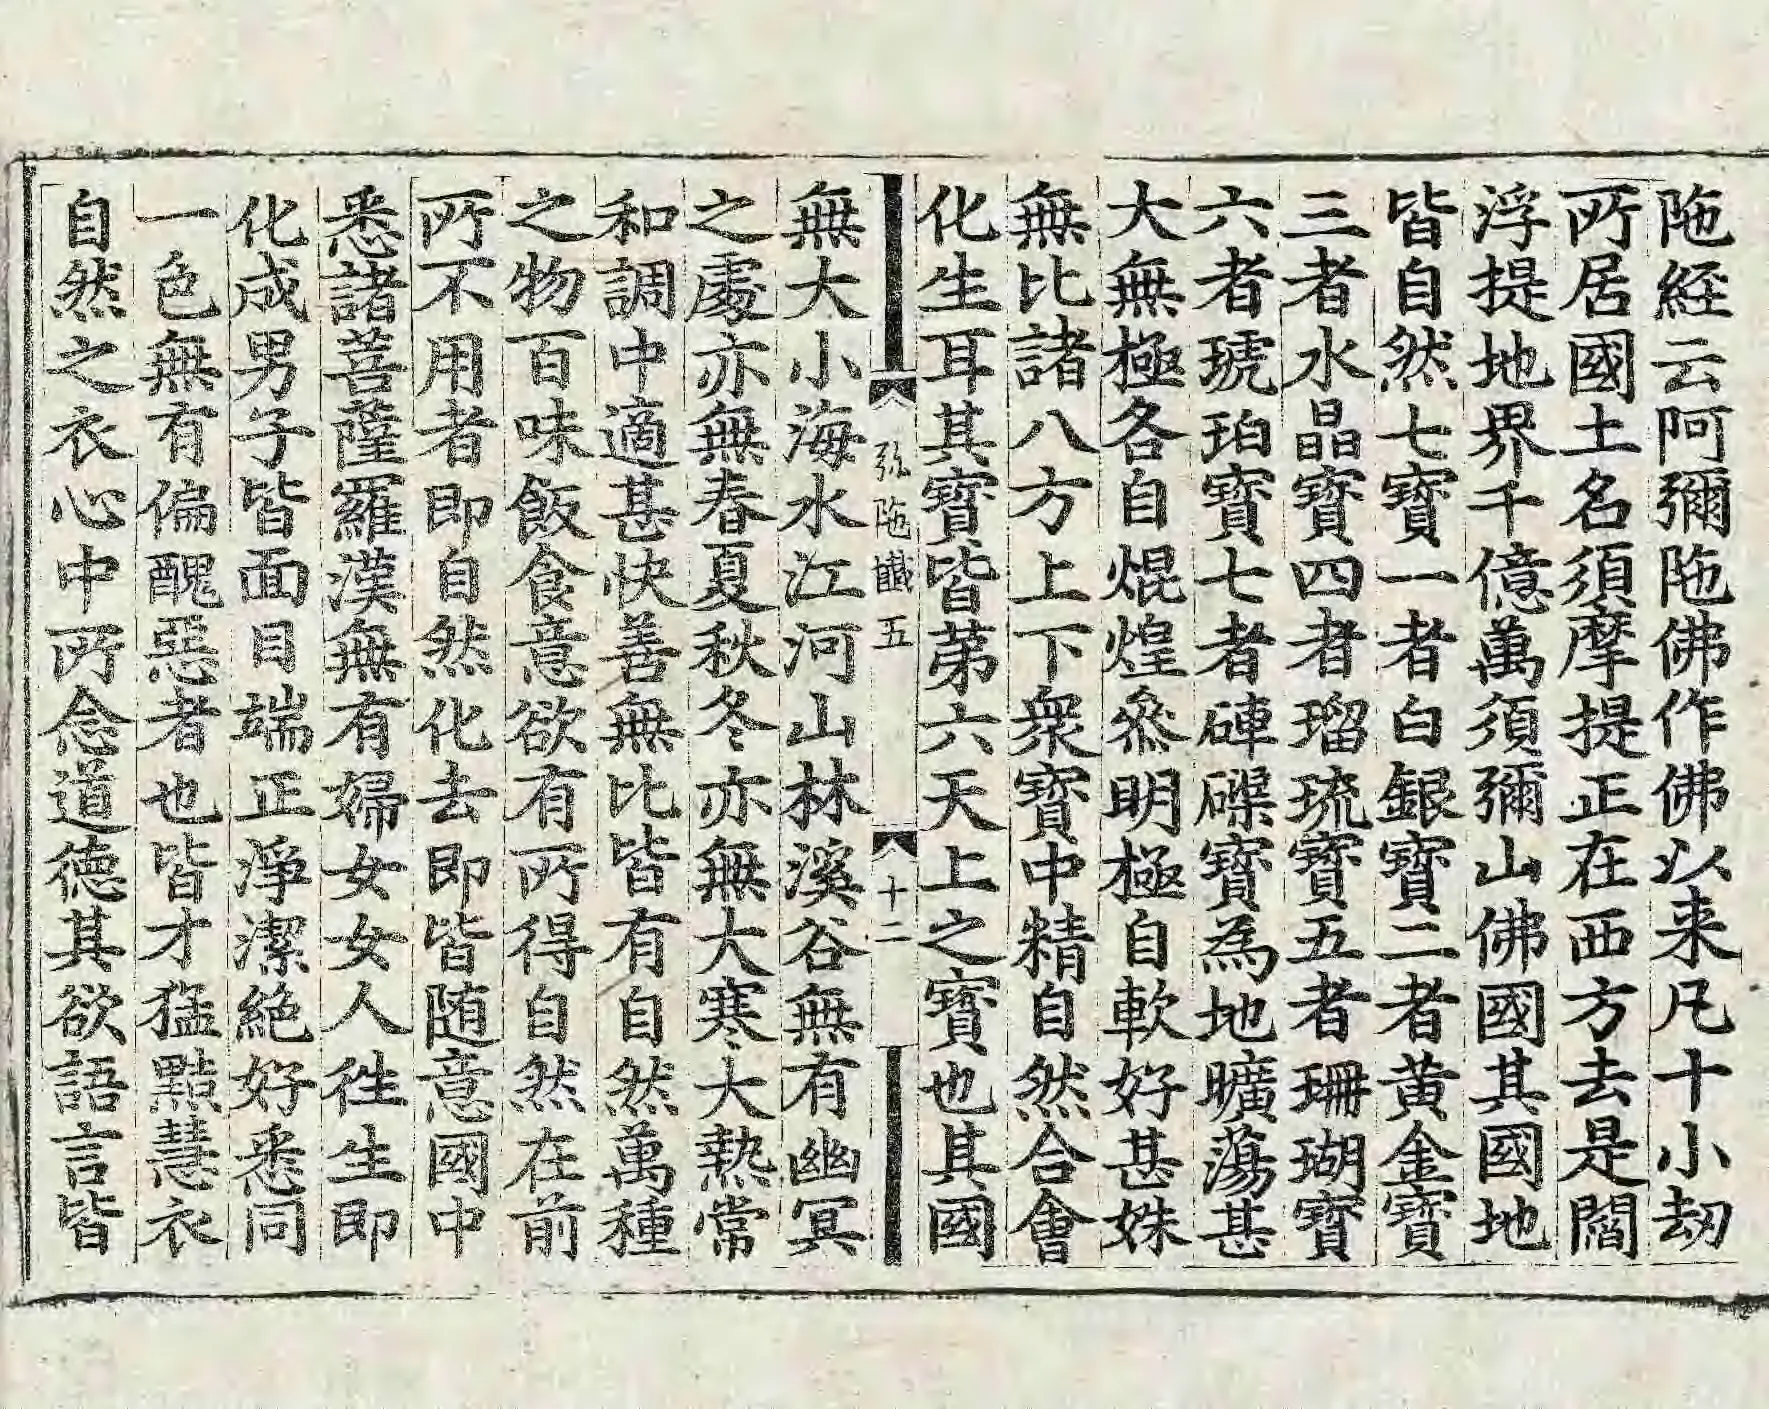 陁経云阿彌陁佛作佛以来凡十小刼
所居國土名須摩提正在西方去是閻
浮提地界千億萬須彌山佛國其國地
皆自然七寶一者白銀寶二者黄金寶
三者水晶寶四者瑠琉寶五者珊瑚寶
六者琥珀寶七者硨磲寶為地曠蕩甚
大無極各自焜煌叅明極自軟好甚姝
無比諸八方上下衆寶中精自然合會
化生耳其寶皆苐六天上之寶也其國
弥陁懺五
十二
無大小海水江河山林溪谷無有幽冥
之處亦無春夏秋冬亦無大寒大熱常
和調中適甚快善無比皆有自然萬種
之物百味飯食意欲有所得自然在前
所不用者即自然化去即皆随意國中
悉諸菩薩羅漢無有婦女女人徃生即
化成男子皆面目端正淨潔絶好悉同
一色無有偏醜惡者也皆才猛黠慧衣
自然之衣心中所念道德其欲語言皆